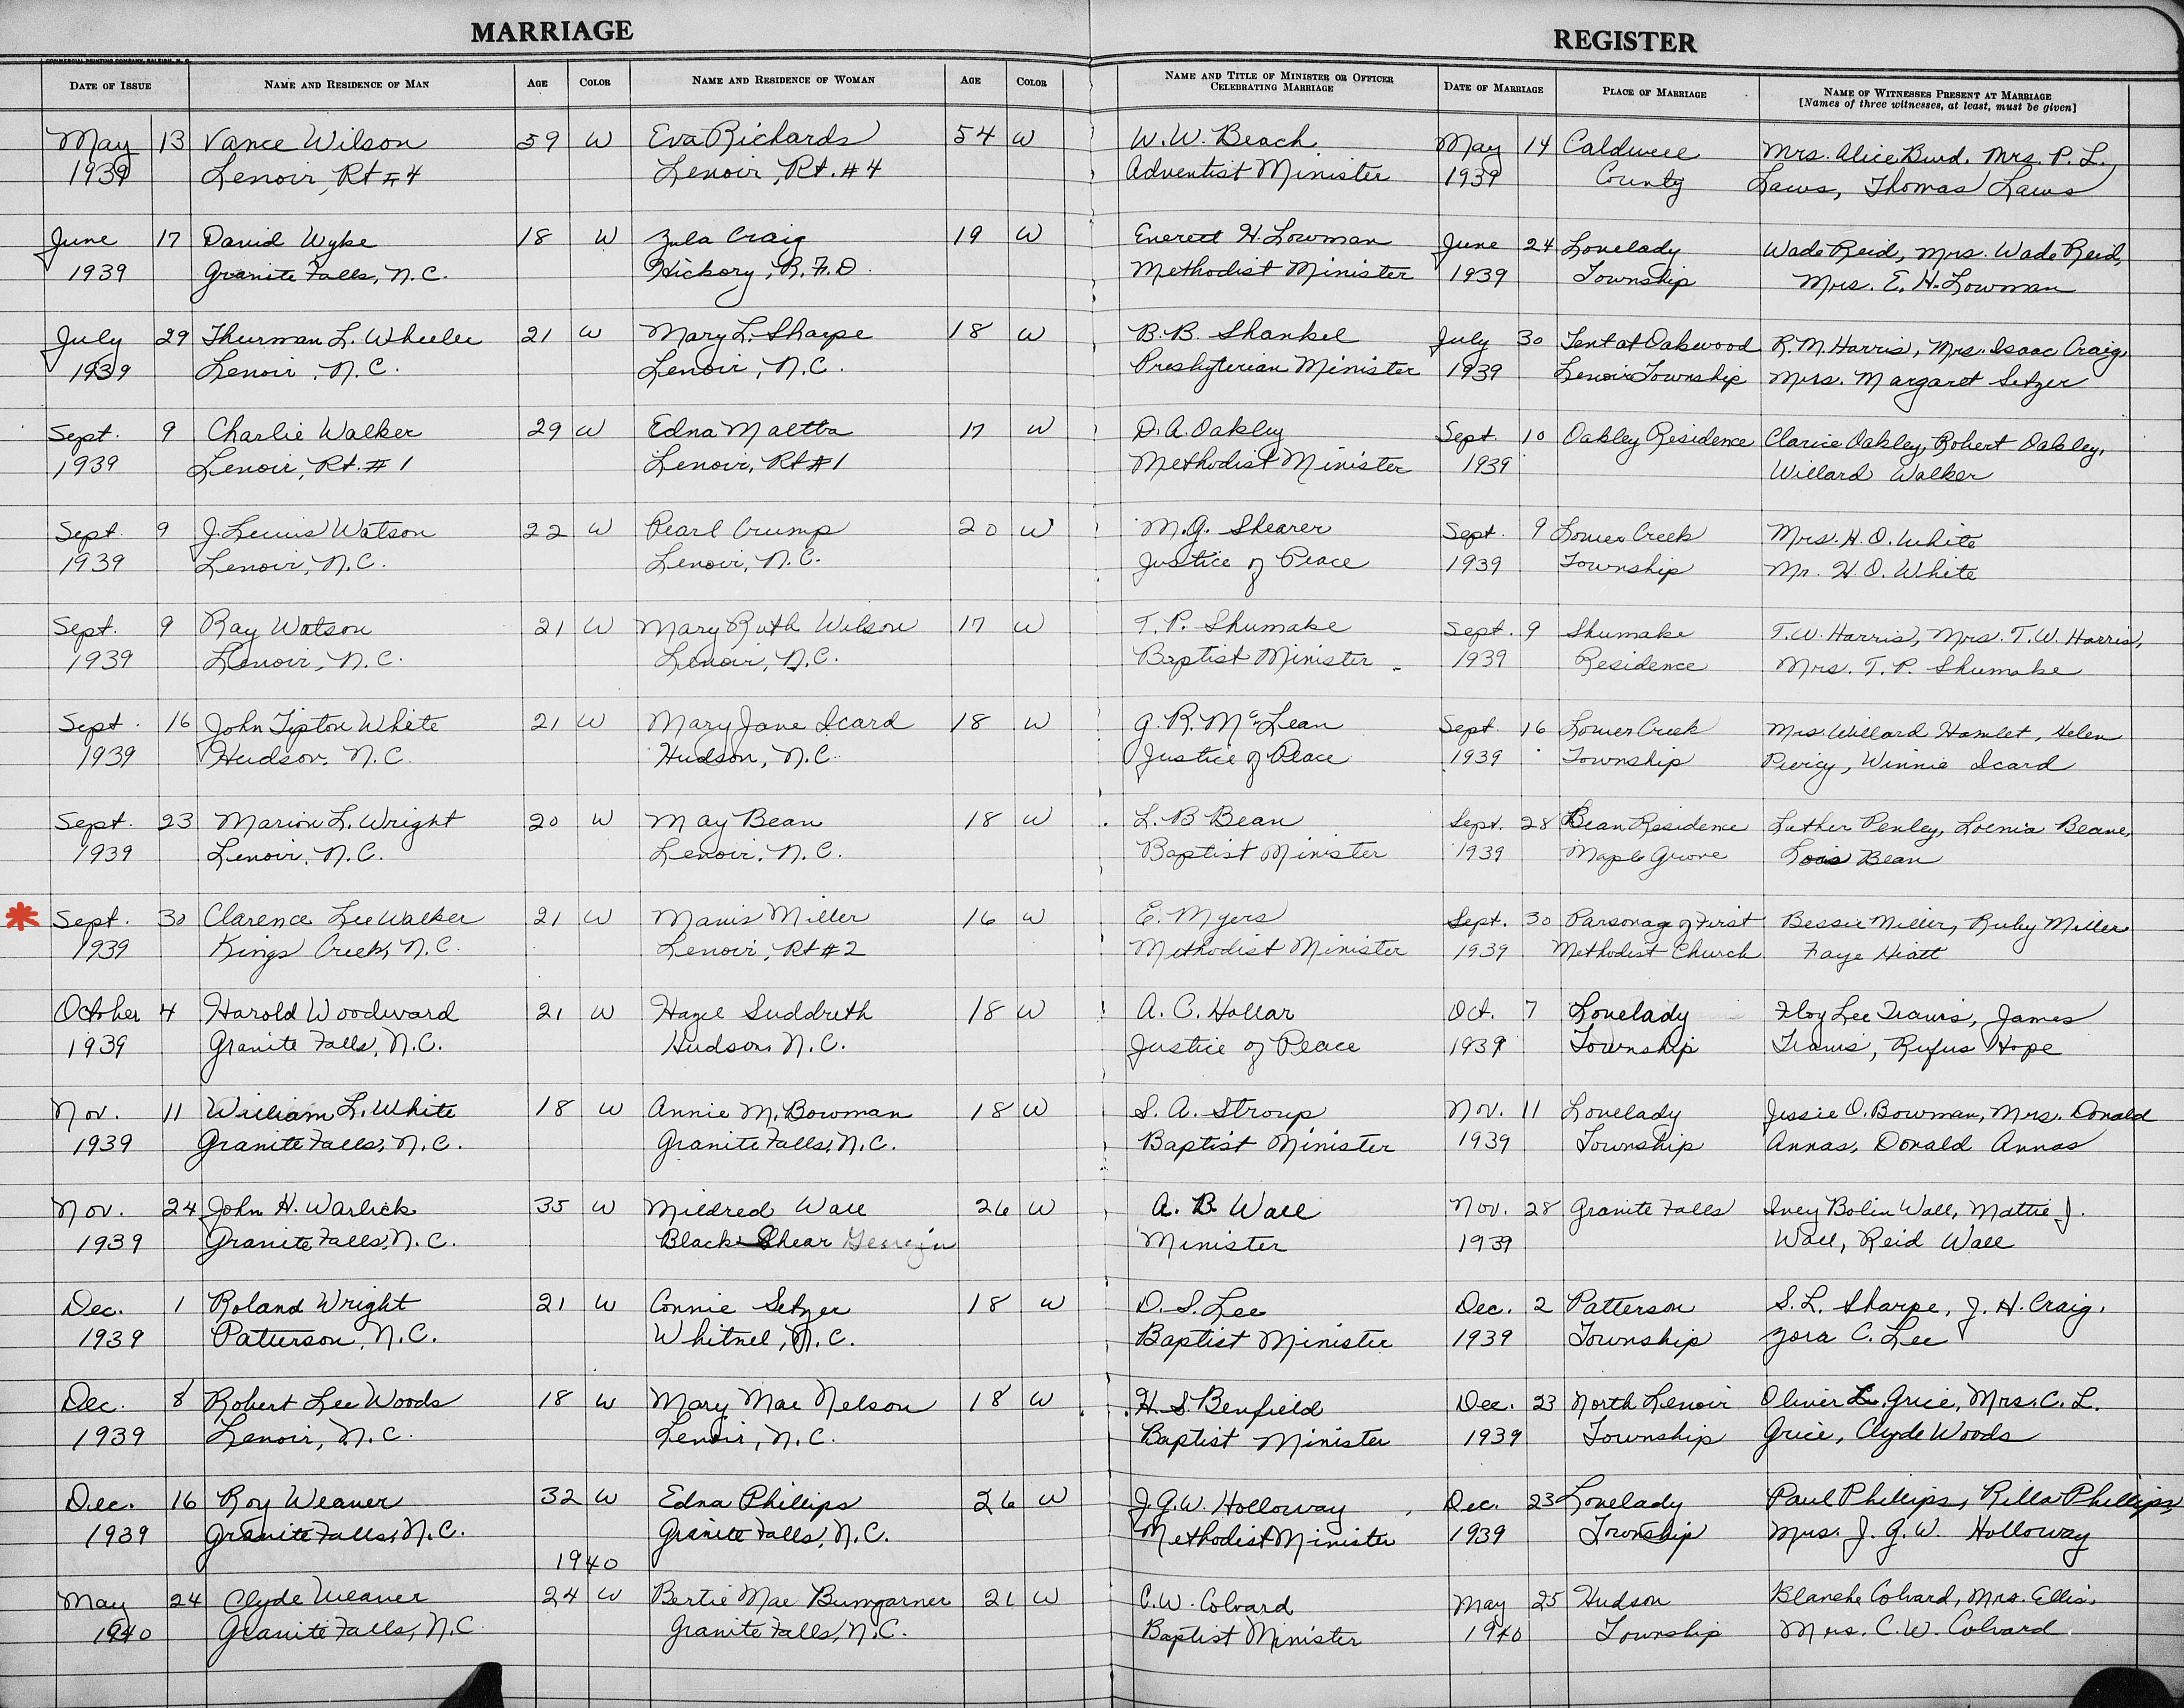 MARRIAGE REGISTER
COMMERCIAL PRINTING COMPANY, RALEIGH, N. C.
DATE OF ISSUE NAME AND RESIDENCE OF MAN AGE COLOR NAME AND RESIDENCE OF WOMAN AGE COLOR NAME AND TITLE OF MINISTER OR OFFICER CELEBRATING MARRIAGE DATE OF MARRIAGE PLACE OF MARRIAGE NAME OF WITNESSES PRESENT AT MARRIAGE
[Names of three witnesses, at least, must be given]
May 13 Vance Wilson 59 W Eva Richards 54 W W. W. Beach May 14 Caldwell Mrs. Alice Burd, Mrs. P. L.
1939 Lenoir, Rt #4 Lenoir, Rt. #4 Adventist Minister 1939 County Laws, Thomas Laws
June 17 David Wyke 18 W Zula Craig 19 W Everett H. Lowman June 24 Lovelady Wade Reid, Mrs. Wade Reid,
1939 Granite Falls, N.C. Hickory, R.F.D. Methodist Minister 1939 Township Mrs. E. H. Lowman
July 29 Thurman L. Wheeler 21 W Mary L. Sharpe 18 W B. B. Shankel July 30 Tent at Oakwood R. M. Harris, Mrs. Isaac Craig,
1939 Lenoir, N.C. Lenoir, N.C. Presbyterian Minister 1939 Lenoir Township Mrs. Margaret Setzer
Sept. 9 Charlie Walker 29 W Edna Maltba 17 W D. A. Oakley Sept. 10 Oakley Residence Clarice Oakley, Robert Oakley,
1939 Lenoir, Rt. #1 Lenoir, Rt #1 Methodist Minister 1939 Willard Walker
Sept. 9 J. Lewis Watson 22 W Pearl Crump 20 W M. G. Shearer Sept. 9 Lower Creek Mrs. H. O. White
1939 Lenoir, N.C. Lenoir, N.C. Justice of Peace 1939 Township Mr. H. O. White
Sept. 9 Ray Watson 21 W Mary Ruth Wilson 17 W T. P. Shumake Sept. 9 Shumake T. W. Harris, Mrs. T. W. Harris,
1939 Lenoir, N.C. Lenoir, N.C. Baptist Minister 1939 Residence Mrs. T. P. Shumake
Sept. 16 John Tipton White 21 W Mary Jane Icard 18 W G. R. McLean Sept. 16 Lower Creek Mrs. Willard Hamlet, Helen
1939 Hudson, N.C. Hudson, N.C. Justice of Peace 1939 Township Piercy, Winnie Icard
Sept. 23 Marion L. Wright 20 W May Bean 18 W L. B Bean Sept. 28 Bean Residence Luther Penley, Beane,
1939 Lenoir, N.C. Lenoir, N.C. Baptist Minister 1939 Maple Grove Lois Bean
Sept. 30 Clarence Lee Walker 21 W Mavis Miller 16 W E. Myers Sept. 30 Parsonage of First Bessie Miller, Ruby Miller
1939 Kings Creek, N.C. Lenoir, Rt #2 Methodist Minister 1939 Methodist Church Faye Hiatt
October 4 Harold Woodward 21 W Hazel Suddreth 18 W A. C. Hollar Oct. 7 Lovelady Floy Lee Travis, James
1939 Granite Falls, N.C. Hudson, N.C. Justice of Peace 1939 Township Travis, Rufus Hope
Nov. 11 William L. White 18 W Annie M. Bowman 18 W S. A. Stroup Nov. 11 Lovelady Jessie O. Bowman, Mrs. Donald
1939 Granite Falls, N.C. Granite Falls, N.C. Baptist Minister 1939 Township Annas, Donald Annas
Nov. 24 John H. Warlick 35 W Mildred Wall 26 W A. B. Wall Nov. 28 Granite Falls Ivey Bolin Wall, Mattie J.
1939 Granite Falls, N.C. Black Shear Georgia Minister 1939 Wall, Reid Wall
Dec. 1 Roland Wright 21 W Connie Setzer 18 W D. S. Lee Dec. 2 Patterson S. L. Sharpe, J. H. Craig,
1939 Patterson, N.C. Whitnel, N.C. Baptist Minister 1939 Township Zora C. Lee
Dec. 8 Robert Lee Woods 18 W Mary Mae Nelson 18 W H. S. Benfield Dec. 23 North Lenoir Oliver L. Grice, Mrs. C. L.
1939 Lenoir, N.C. Lenoir, N.C. Baptist Minister 1939 Township Grice, Clyde Woods
Dec. 16 Roy Weaver 32 W Edna Phillips 26 W J. G. W. Holloway Dec. 23 Lovelady Paul Phillips, Rilla Phillips,
1939 Granite Falls, N.C. Granite Falls, N.C. Methodist Minister 1939 Township Mrs. J. G. W. Holloway
1940
May 24 Clyde Weaver 24 W Bertie Mae Bumgarner 21 W C. W. Colvard May 25 Hudson Blanche Colvard, Mrs. Ellis,
1940 Granite Falls, N.C. Granite Falls, N.C. Baptist Minister 1940 Township Mrs. C. W. Colvard